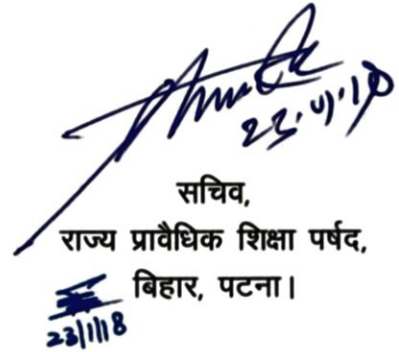 सचिव,
राज्य प्रावैधिक शिक्षा पर्षद,
बिहार, पटना।
23/1/18